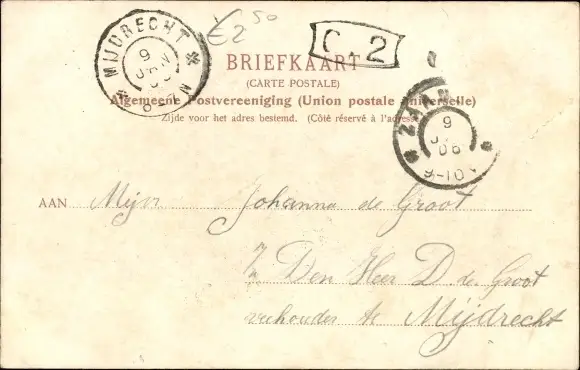 MIJDRECHT 9 JAN
€2,50
C. 2
BRIEFKAART
(CARTE POSTALE)
Algemeene Postvereeniging (Union postale universelle)
Zijde voor het adres bestemd. (Côté réservé à l'adresse
9 06
AAN Mejvr Johanna de Groot
Den Heer D. de Groot
veehouder te Mijdrecht